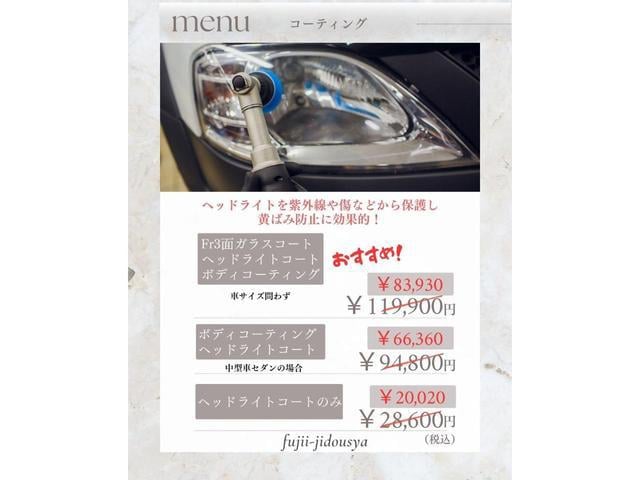 menu
コーティング
ヘッドライトを紫外線や傷などから保護し
黄ばみ防止に効果的！
Fr3面ガラスコート
ヘッドライトコート
ボディコーティング
おすすめ！
車サイズ問わず
￥83,930
￥119,900円
ボディコーティング
ヘッドライトコート
中型車セダンの場合
￥66,360
￥94,800円
ヘッドライトコートのみ
￥20,020
￥28,600円
（税込）
fujii-jidousya